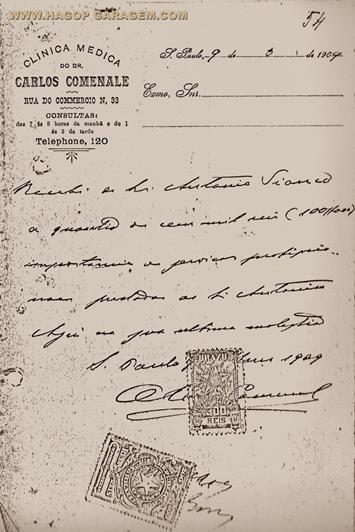 WWW.HAGOP.GARAGEM.COM
54
CLINICA MEDICA
DO DR.
CARLOS COMENALE
RUA DO COMMERCIO N, 33
CONSULTAS:
das 7 ás 8 horas da manhã e de 1
ás 3 da tarde
Telephone, 120
S. Paulo, 9 de 3 de 1909
Exmo. Snr.
Recebi do Sr Antonio
a quantia de cem mil reis (100$000)
importancia de serviços
prestados ao Sr Antonio
na sua ultima molestia
S. Paulo, 1909
BRAZIL
300
REIS